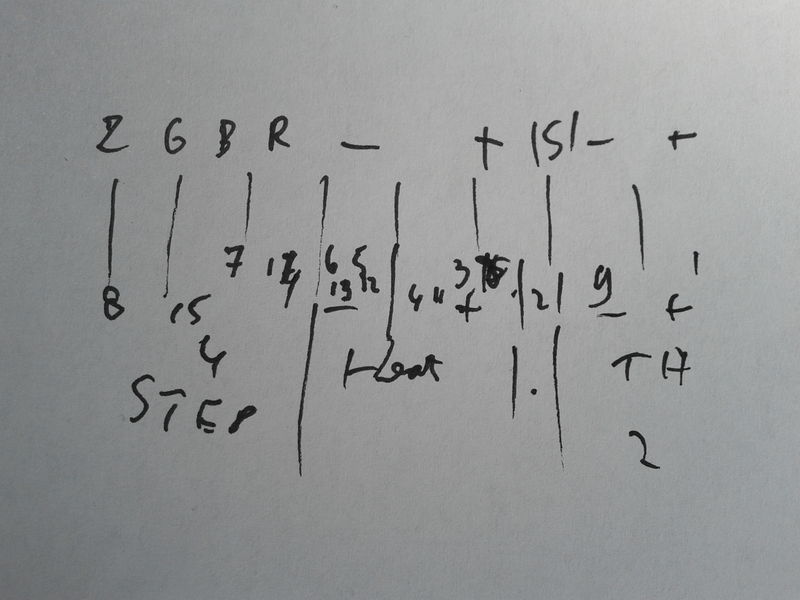 Z G B R — + |S| - +
7 6 5 3 1
8 15 13 12 4 11 + 2 9 +
4 Heat . TH
STEP
2